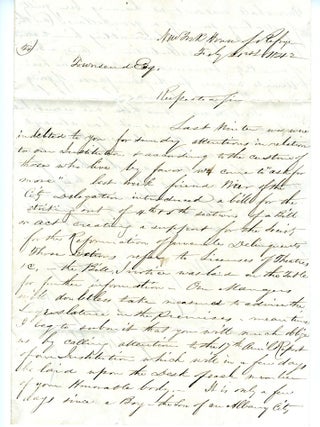 New York House of Refuge
Feby 1842
Townsend Esq.
Respected Sir
Last Winter we were
indebted to you for sundry attentions in relation
to our Institution & according to the custom of
those who live by favor "we come to ask for
more" last week friend of the
City Delegation introduced a bill for the
out of & 10th sections of a bill
or act creating a support for the Society
for the Reformation of Juvenile Delinquents
Those Sections refer to Licenses of Theatres
&c, — the Bill I notice was laid on the table
for further information — Our Managers
will doubtless take measures to advise the
Legislature in the Premises — mean time
I beg to submit that you will much oblige
us by calling attention to the 17th Annl Report
of our Institution which will in a few days
be laid upon the Desk of each member
of your Honorable body — It is only a few
days since a Boy of an Albany City